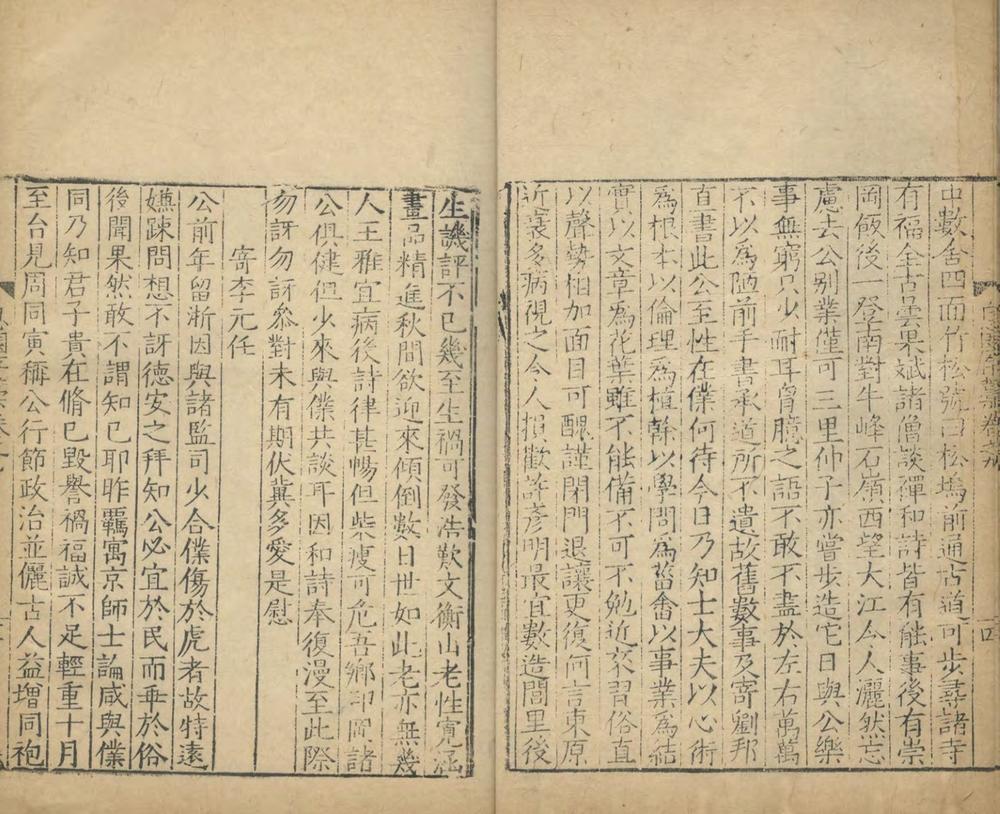 中數舍四面竹松號曰松塢前通古道可步尋諸寺
有福全古曇果斌諸僧談禪和詩皆有能事後有崇
岡飯後一登南對牛峰石嶺西望大江令人灑然忘
慮去公別業僅可三里仲子亦嘗步造它日與公樂
事無窮只少耐耳胷臆之語不敢不盡於左右萬萬
不以為陋前手書承道所不遺故舊數事及寄劉邦
直書此公至性在僕何待今日乃知士大夫以心術
為根本以倫理為楨幹以學問為菑畬以事業為結
實以文章為花葉雖不能備不可不勉近來習俗直
以聲勢相加面目可醜謹閉門退讓更復何言東原
近衰多病視之令人損歡許彥明最宜數造閭里後
生譏評不已幾至生禍可發浩歎文衡山老性寬涵
畫品精進秋間欲迎來傾倒數日世如此老亦無幾
人王雅宜病後詩律甚暢但柴瘦可危吾鄉印岡諸
公俱健但少來與僕共談耳因和詩奉復漫至此際
勿訝勿訝叅對未有期伏冀多愛是慰
寄李元任
公前年留浙因與諸監司少合僕傷於虎者故特遠
嫌踈問想不訝德安之拜知公必宜於民而垂於俗
後聞果然敢不謂知已耶昨覊寓京師士論咸與僕
同乃知君子貴在脩已毀譽禍福誠不足輕重十月
至台見周同寅稱公行節政治並儷古人益增同袍